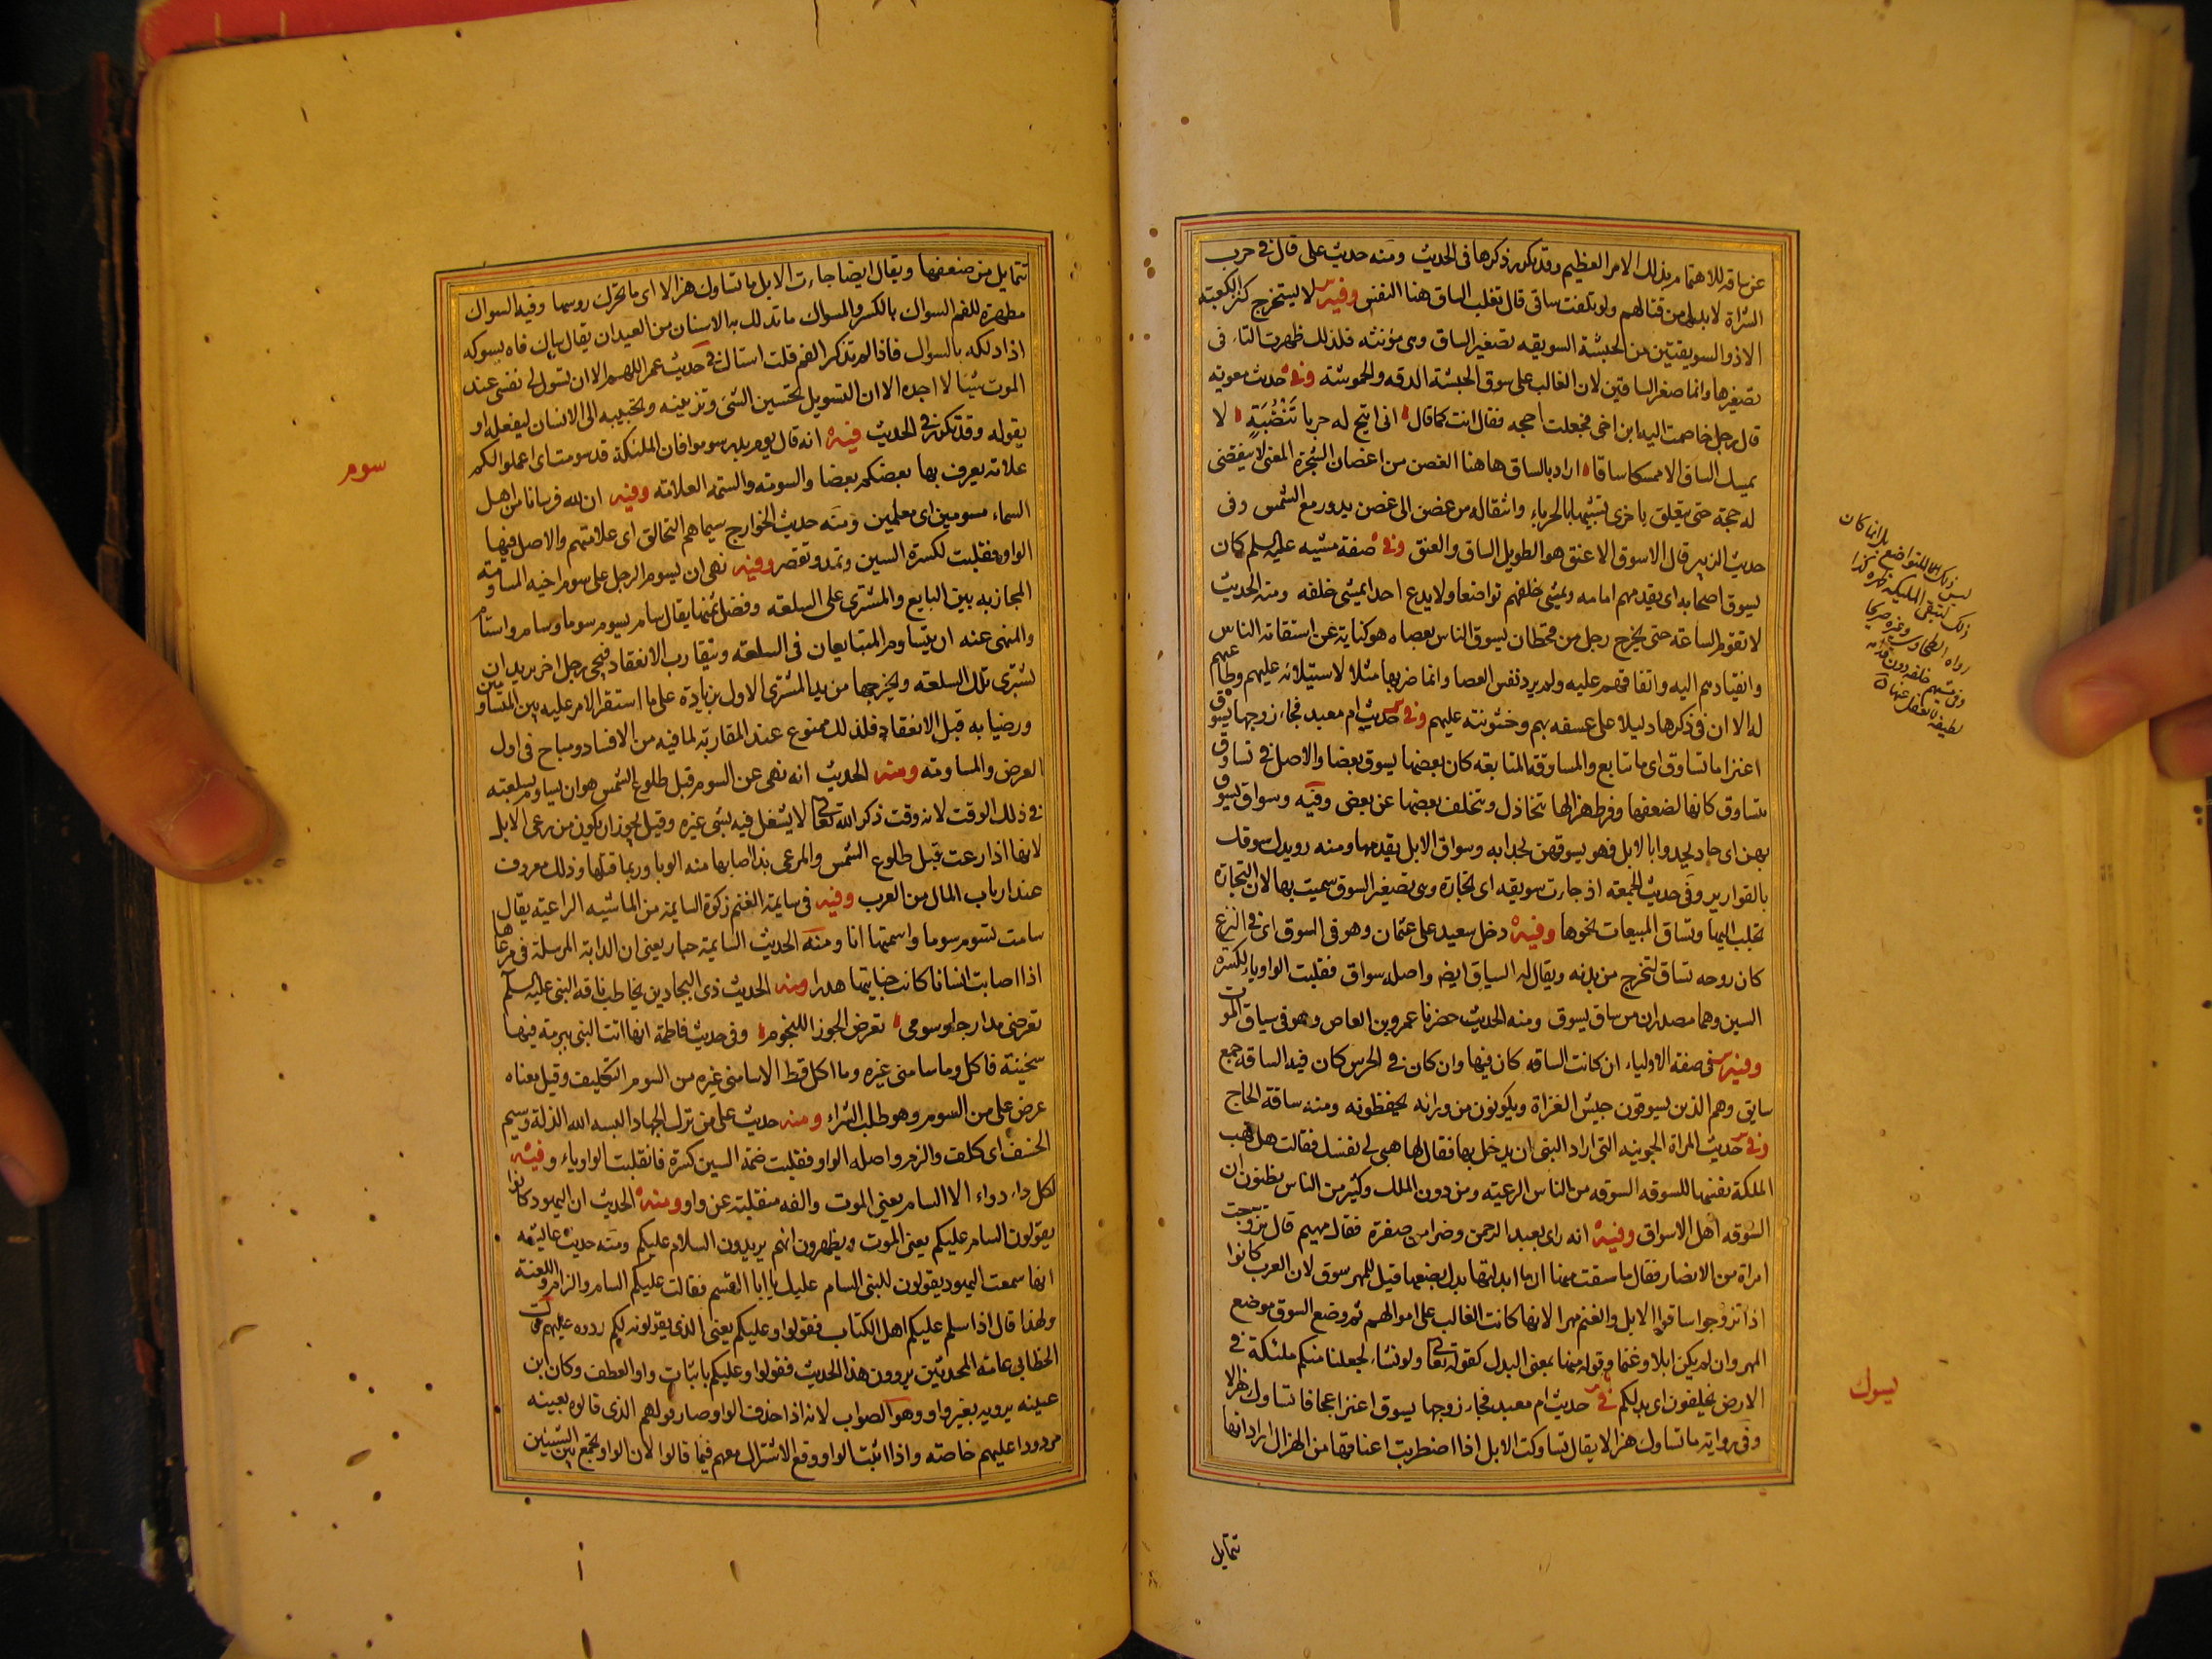 عن ساقه للاهتمام بذلك الامر العظيم وقد تكرر ذكرها فى الحديث ومنه حديث على قال فى حرب
الشراة لا بد لى من قتالهم ولو تلفت ساقى قال ثعلب الساق هنا النفس وفيه لا يستخرج كنز الكعبة
الا ذو السويقتين من الحبشة السويقه تصغير الساق وهى مؤنثه فلذلك ظهرت التاء فى
تصغيرها وانما صغر الساقين لان الغالب على سوق الحبشة الدقه والحموشه وفى حديث معويه
قال رجل خاصمت اليه ابن اخى فجعلت احجه فقال انت كما قال انى اتيح له حربا تَنْضُبَةٍ لا
يمسك الساق الا ممسكا ساقا اراد بالساق هاهنا الغصن من اغصان الشجرة المعنى لا يقضى
له حجة حتى يتعلق باخرى تشبيها بالحرباء وانتقاله من غصن الى غصن يدور مع الشمس وفى
حديث الزبير قال الاسوق الاعنق هو الطويل الساق والعنق وفى صفة مشيه عليه السلم كان
يسوق اصحابه اى يقدمهم امامه ويمشى خلفهم تواضعا ولا يدع احدا يمشى خلفه ومنه الحديث
لا تقوم الساعة حتى يخرج رجل من قحطان يسوق الناس بعصاه هو كناية عن استقامة الناس
وانقيادهم اليه واتفاقهم عليه ولم يرد نفس العصا وانما ضربها مثلا لاستيلائه عليهم وطاعتهم
له الا ان فى ذكرها دليلا على عسفه بهم وخشونته عليهم وفى حديث ام معبد فجاء زوجها يسوق
اعنزا ما تساوق اى ما تتابع والمساوقة المتابعة كان بعضها يسوق بعضا والاصل فى تساوق
تتساوق كانها لضعفها وفرط هزالها تتخاذل ويتخلف بعضها عن بعض وفيه وسواق يسوق
بهن اى حاد يحدوا بالابل فهو يسوقهن بحدايه وسواق الابل يقدمها ومنه رويدك سوقك
بالقوارير وفى حديث الجمعة اذ جاءت سويقه اى تجارة وهى تصغير السوق سميت بها لان التجارة
تجلب اليها وتساق المبيعات نحوها وفيه دخل سعيد على عثمان وهو فى السوق اى فى النزع
كان روحه تساق لتخرج من بدنه ويقال له السياق ايضا واصله سواق فقلبت الواو ياء لكسرة
السين وهما مصدران من ساق يسوق ومنه الحديث حضرنا عمرو بن العاص وهو فى سياق الموت
وفيه فى صفة الاولياء ان كانت الساقه كان فيها وان كان فى الحرس كان فيه الساقة جمع
سايق وهم الذين يسوقون جيش الغزاة ويكونون من ورائه يحفظونه ومنه ساقة الحاج
وفى حديث المراة الجونيه التى اراد النبى ان يدخل بها فقال لها هبى لى نفسك فقالت هل تهب
الملكة نفسها للسوقه السوقه من الناس الرعيه ومن دون الملك وكثير من الناس يظنون ان
السوقه اهل الاسواق وفيه انه راى بعبد الرحمن وضرا من صفرة فقال مهيم قال تزوجت
امراة من الانصار فقال ما سقت منها اى ما ابدلتها بدل بضعها قيل للمهر سوق لان العرب كانوا
اذا تزوجوا ساقوا الابل والغنم مهرا لانها كانت الغالب على اموالهم ثم وضع السوق موضع
المهر وان لم يكن ابلا وغنما وقوله منها بمعنى البدل كقوله تعالى ولو نشاء لجعلنا منكم ملئكة فى
الارض يخلفون اى بدلكم فى حديث ام معبد فجاء زوجها يسوق اعنزا عجافا تساوك هزالا
وفى رواية ما تساوك هزالا يقال تساوكت الابل اذا اضطربت اعناقها من الهزال اراد انها
ليس ذلك للتواضع بل انما كان
ذلك لتبقى الملئكة ظهره كذا
رواه الطحاوى وغيره صريحا
يسوك
تتمايل
تتمايل من ضعفها ويقال ايضا جاءت الابل ما تساوك هزالا اى ما تحرك روسها وفيه السواك
مطهرة للفم السواك بالكسر والمسواك ما تدلك به الاسنان من العيدان يقال ساك فاه يسوكه
اذا دلكه بالسواك فاذا لم تذكر الفم قلت استاك فى حديث عمر اللهم الا ان تسول لى نفسى عند
الموت شيئا لا اجده الان التسويل تحسين الشئ وتزيينه وتحبيبه الى الانسان ليفعله او
يقوله وقد تكرر فى الحديث فيه انه قال يوم بدر سوموا فان الملئكة قد سومت اى اعملوا لكم
علامة يعرف بها بعضكم بعضا والسومه والسمة العلامة وفيه ان لله فرسانا من اهل
السماء مسومين اى معلمين ومنه حديث الخوارج سيماهم التحالق اى علامتهم والاصل فيها
الواو فقلبت لكسرة السين وتمد وتقصر وفيه نهى ان يسوم الرجل على سوم اخيه المساومة
المجاذبه بين البايع والمشترى على السلعه وفضل ثمنها يقال سام يسوم سوما وساوم واستام
والمنهى عنه ان يتساوم المتبايعان فى السلعه ويتقارب الانعقاد فيجى رجل اخر يريد ان
يشترى تلك السلعه ويخرجها من يد المشترى الاول بزيادة على ما استقر الامر عليه بين المتساومين
ورضيا به قبل الانعقاد فلذلك ممنوع عند المقاربة لما فيه من الافساد ومباح فى اول
العرض والمساومه ومنه الحديث انه نهى عن السوم قبل طلوع الشمس هو ان يساوم بسلعته
فى ذلك الوقت لانه وقت ذكر الله تعالى لا يشغل فيه بشى غيره وقيل يجوز ان يكون من رعى الابل
لانها اذا رعت قبل طلوع الشمس والمرعى ند اصابها منه الوبا وربما قتلها وذلك معروف
عند ارباب المال من العرب وفيه فى سايمة الغنم زكوة السايمة من الماشيه الراعيه يقال
سامت تسوم سوما واسمتها انا ومنه الحديث السايمة جبار يعنى ان الدابة المرسلة فى مرعاها
اذا اصابت انسانا كانت جنايتها هدرا ومنه الحديث ذى البجادين يخاطب ناقة النبى عليه السلم
تعرضى مدارجا وسومى تعرض الجوزا للنجوم وفى حديث فاطمة انها اتت النبى ببرمة فيها
سخينة فاكل وما سامنى غيره وما اكل قط الا سامنى غيره من السوم التكليف وقيل معناه
عرض على من السوم وهو طلب الشراء ومنه حديث على من ترك الجهاد البسه الله الذلة وسيم
الخسف اى كلف والزم واصله الواو فقلبت ضمة السين كسرة فانقلبت الواو ياء وفيه
لكل داء دواء الا السام يعنى الموت والفه منقلبة عن واو ومنه الحديث ان اليهود كانوا
يقولون السام عليكم يعنى الموت ويظهرون انهم يريدون السلام عليكم ومنه حديث عائشه
انها سمعت اليهود يقولون للنبى السام عليك يا ابا القسم فقالت عليكم السام والزام واللعنة
ولهذا قال اذا سلم عليكم اهل الكتاب فقولوا وعليكم يعنى الذى يقولونه لكم ردوه عليهم قال
الخطابى عامة المحدثين يروون هذا الحديث فقولوا وعليكم باثبات واو العطف وكان ابن
عيينه يرويه بغير واو وهو الصواب لانه اذا حذف الواو صار قولهم الذى قالوه بعينه
مردودا عليهم خاصه واذا اثبت الواو وقع الاشتراك معهم فيما قالوا لان الواو تجمع بين الشيئين
سوم